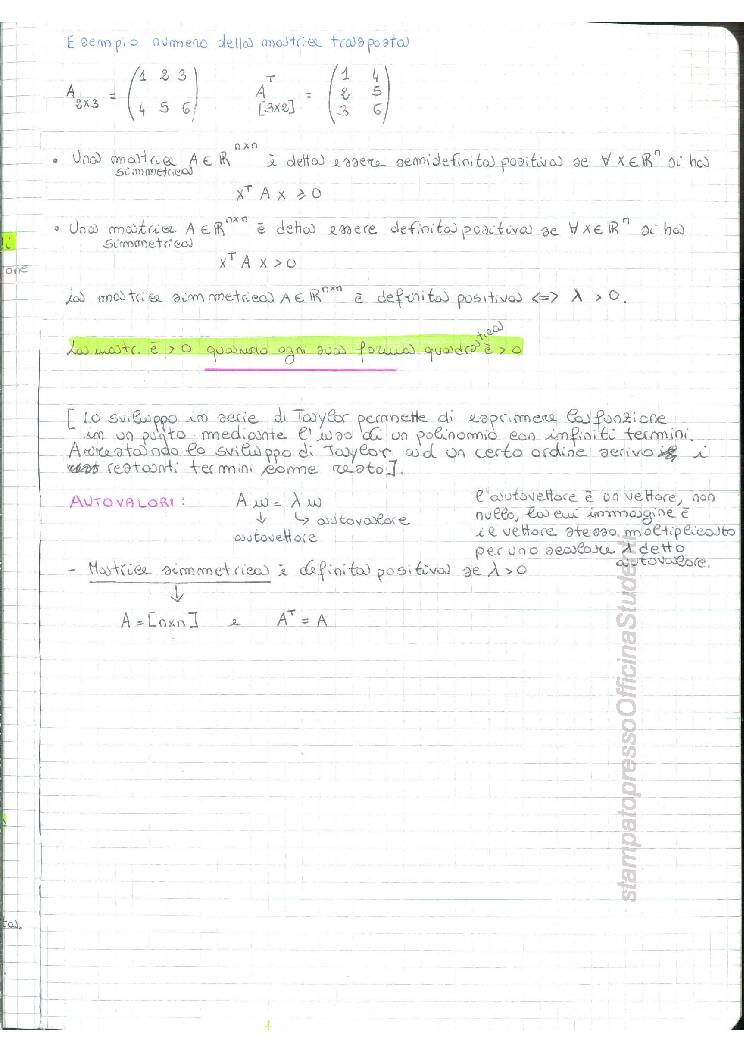 Esempio numero della matrice trasposta
A 2x3 = (1 2 3 / 4 5 6)   Aᵀ [3x2] = (1 4 / 2 5 / 3 6)
• Una matrice A ∈ ℝⁿˣⁿ è detta essere semidefinita positiva se ∀ x ∈ ℝⁿ si ha
simmetrica
xᵀ A x ⩾ 0
• Una matrice A ∈ ℝⁿˣⁿ è detta essere definita positiva se ∀ x ∈ ℝⁿ si ha
simmetrica
xᵀ A x > 0
La matrice simmetrica A ∈ ℝⁿˣⁿ è definita positiva <=> λ > 0.
La matr. è > 0 quando ogni sua forma quadratica è > 0
[Lo sviluppo in serie di Taylor permette di esprimere la funzione
in un punto mediante l'uso di un polinomio con infiniti termini.
Arrestando lo sviluppo di Taylor ad un certo ordine scrivo i
restanti termini come resto].
AUTOVALORI: A w = λ w
↓ ↳ autovalore
autovettore
l'autovettore è un vettore, non
nullo, la cui immagine è
il vettore stesso moltiplicato
per uno scalare λ detto
autovalore.
- Matrice simmetrica è definita positiva se λ > 0
↓
A = [n×n] e Aᵀ = A
stampatopressoOfficinaStudenti
one
ta).